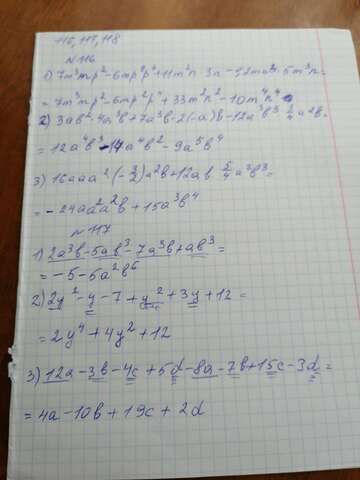 116, 117, 118
№116
1) 7m³mp² - 6mp²p² + 11m²n · 3n - 12mn² · 5m³n =
= 7m³np² - 6mp²p² + 33m²n² - 10m⁴n⁴
2) 3ab² · 4a³b + 7a³b · 2(-a)b - 12a³b³ 3/4 a²b =
= 12a⁴b³ - 14a⁴b² - 9a⁵b⁴
3) 16aaa² (-3/2)a²b + 12ab 5/4 a³b³ =
= -24aa²a²b + 15a³b⁴
№117
1) 2a³b - 5ab³ - 7a³b + ab³ =
= -5 - 5a²b⁶
2) 2y² - y - 7 + y² + 3y + 12 =
= 2y⁴ + 4y² + 12
3) 12a - 3b - 4c + 5d - 8a - 7b + 15c - 3d =
= 4a - 10b + 19c + 2d